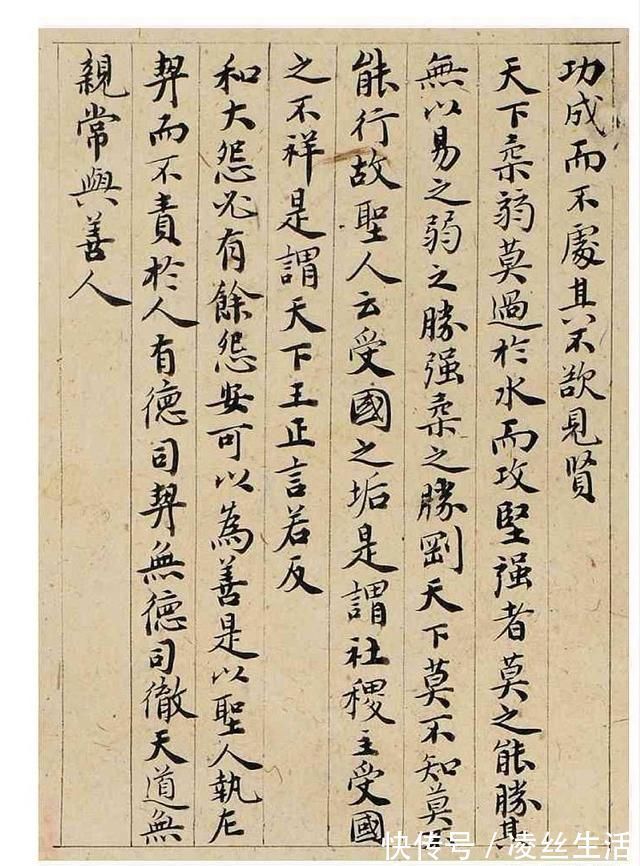 功成而不處其不欲見賢
天下柔弱莫過於水而攻堅强者莫之能勝其
無以易之弱之勝强柔之勝剛天下莫不知莫
能行故聖人云受國之垢是謂社稷主受國
之不祥是謂天下王正言若反
和大怨必有餘怨安可以為善是以聖人執左
契而不責於人有德司契無德司徹天道無
親常與善人
快传号/凌丝生活